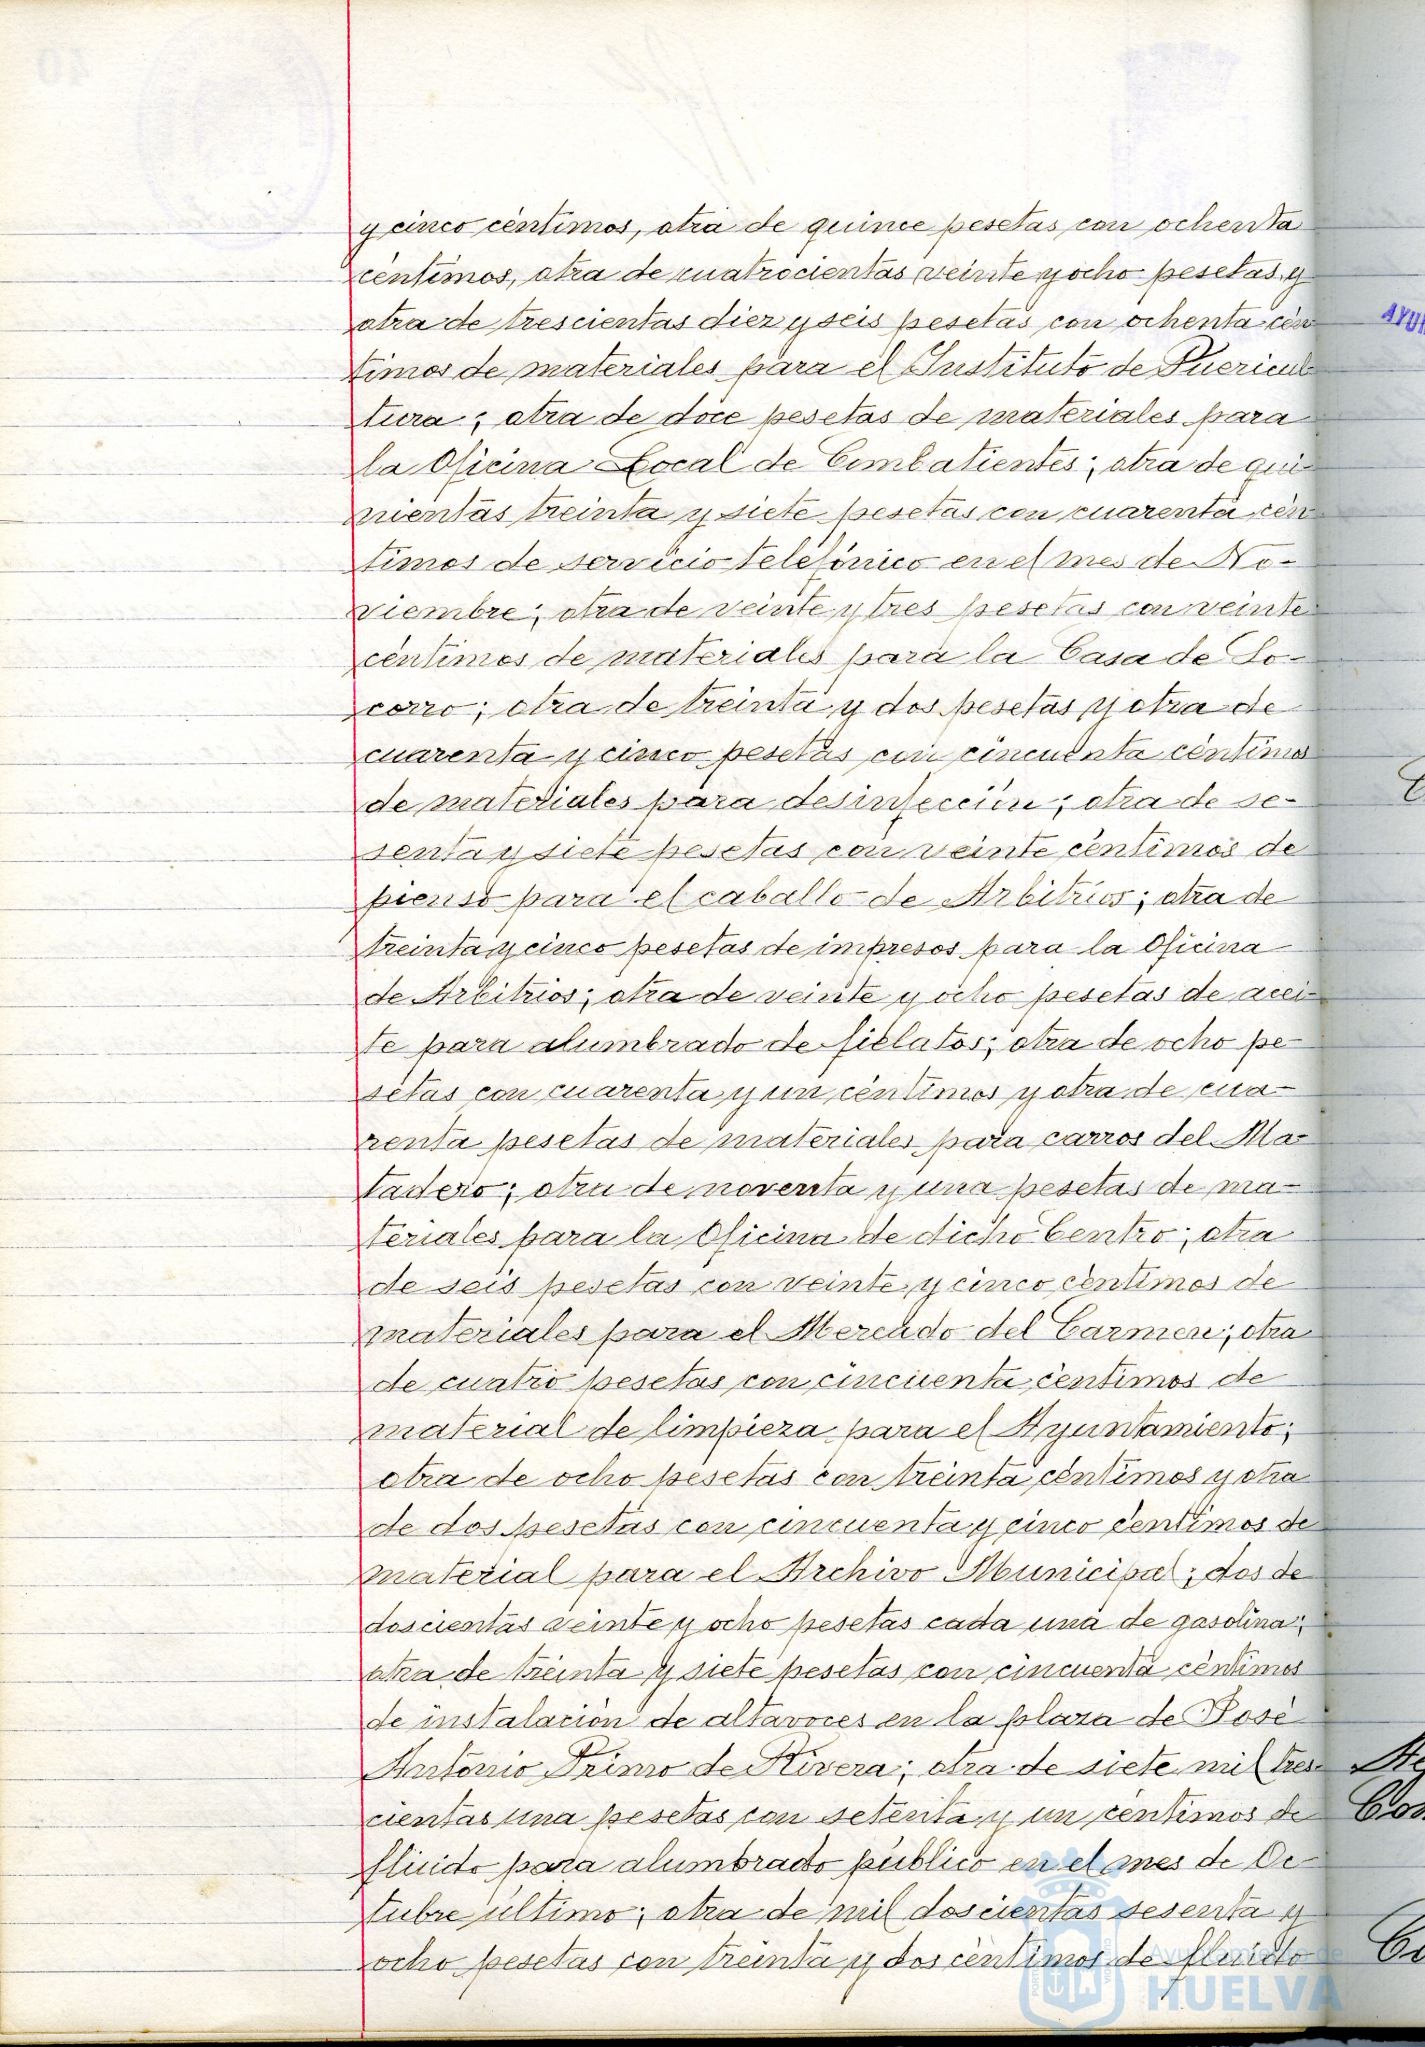 y cinco céntimos, otra de quince pesetas con ochenta
céntimos, otra de cuatrocientas veinte y ocho pesetas y
otra de trescientas diez y seis pesetas con ochenta cén
timos de materiales para el Instituto de Puericul
tura; otra de doce pesetas de materiales para
la Oficina Local de Combatientes; otra de qui-
nientas treinta y siete pesetas con cuarenta cén
timos de servicio telefónico en el mes de No-
viembre; otra de veinte y tres pesetas con veinte
céntimos de materiales para la Casa de So-
corro; otra de treinta y dos pesetas y otra de
cuarenta y cinco pesetas con cincuenta céntimos
de materiales para desinfección; otra de se-
senta y siete pesetas con veinte céntimos de
pienso para el caballo de Arbitrios; otra de
treinta y cinco pesetas de impresos para la Oficina
de Arbitrios; otra de veinte y ocho pesetas de acei-
te para alumbrado de fielatos; otra de ocho pe-
setas con cuarenta y un céntimos y otra de cua-
renta pesetas de materiales para carros del Ma-
tadero; otra de noventa y una pesetas de ma-
teriales para la Oficina de dicho Centro; otra
de seis pesetas con veinte y cinco céntimos de
materiales para el Mercado del Carmen; otra
de cuatro pesetas con cincuenta céntimos de
material de limpieza para el Ayuntamiento;
otra de ocho pesetas con treinta céntimos y otra
de dos pesetas con cincuenta y cinco céntimos de
material para el Archivo Municipal; dos de
doscientas veinte y ocho pesetas cada una de gasolina;
otra de treinta y siete pesetas con cincuenta céntimos
de instalación de altavoces en la plaza de José
Antonio Primo de Rivera; otra de siete mil tres-
cientas una pesetas con setenta y un céntimos de
fluido para alumbrado público en el mes de Oc-
tubre último; otra de mil doscientas sesenta y
ocho pesetas con treinta y dos céntimos de fluido
Ayuntamiento de
HUELVA